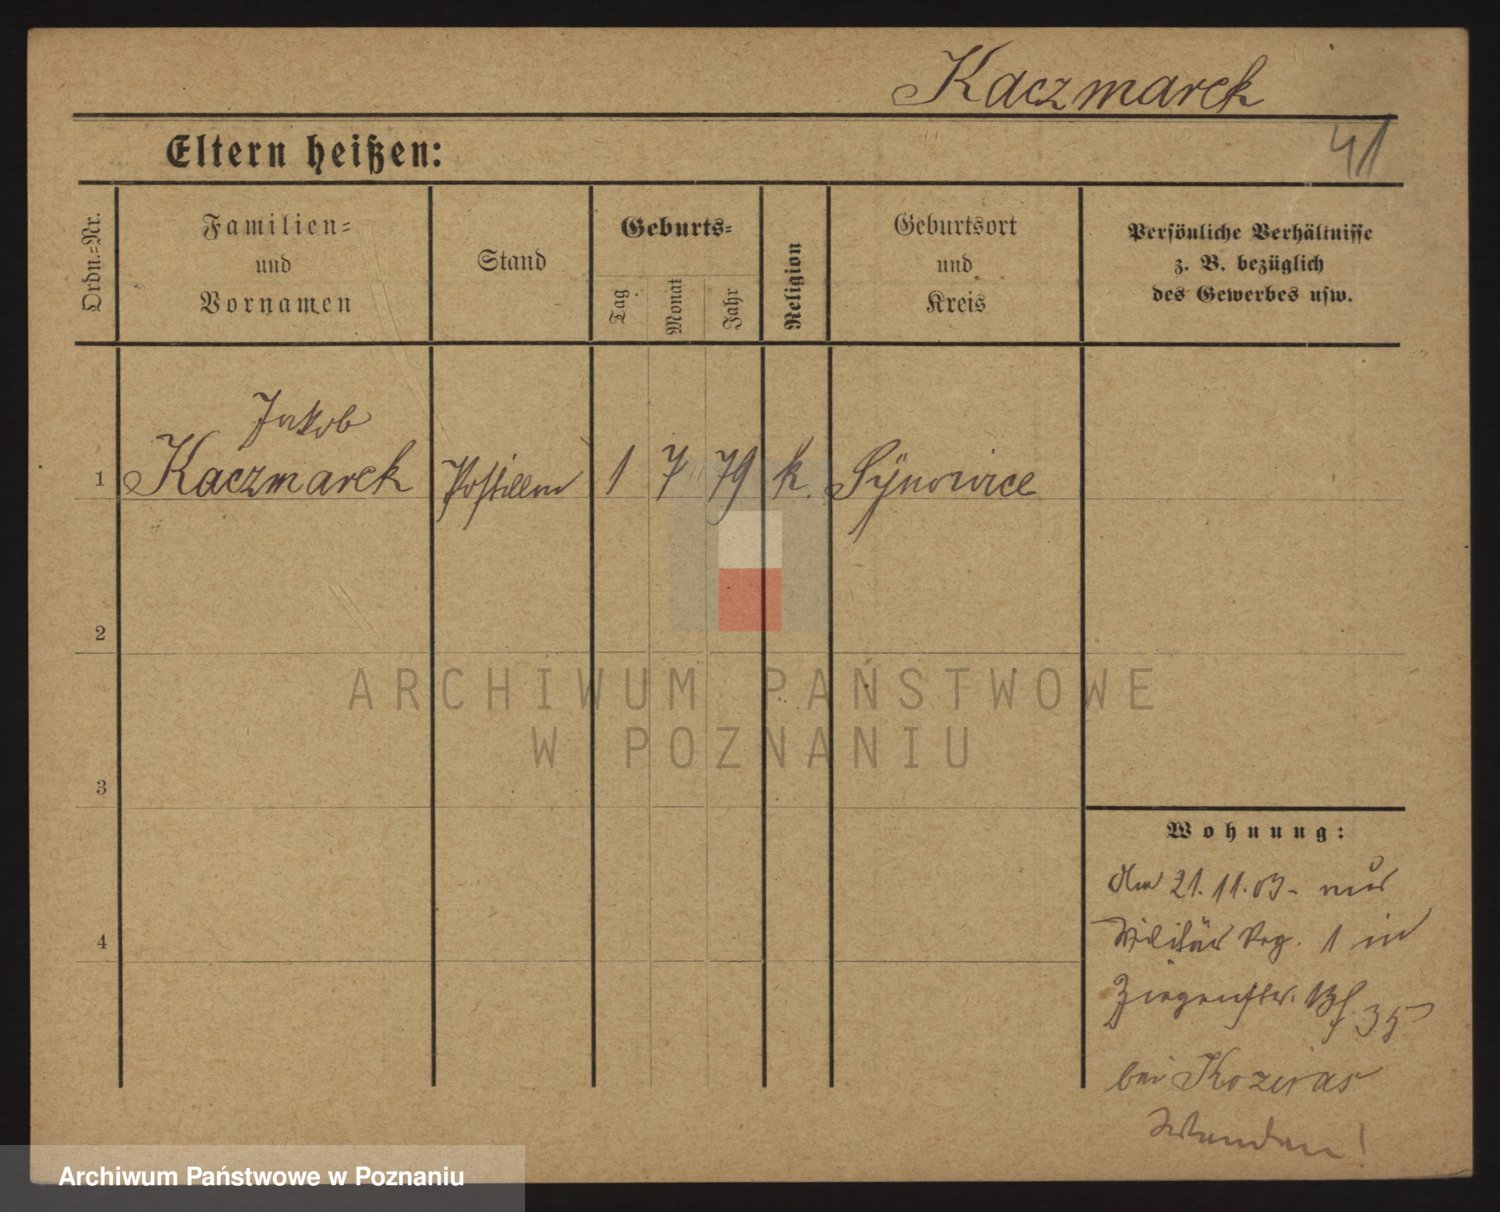 Kaczmarek
41
Eltern heißen:
Ordn.-Nr.
Familien-
und
Vornamen
Stand
Geburts-
Tag
Monat
Jahr
Religion
Geburtsort
und
Kreis
Persönliche Verhältnisse
z. B. bezüglich
des Gewerbes usw.
Jakob
1 Kaczmarek 1 7 79 k. Synowice
2
ARCHIWUM PAŃSTWOWE
W POZNANIU
3
Wohnung:
Am 21.11.03.
Militär 1 in
4
35
bei
Wenden!
Archiwum Państwowe w Poznaniu